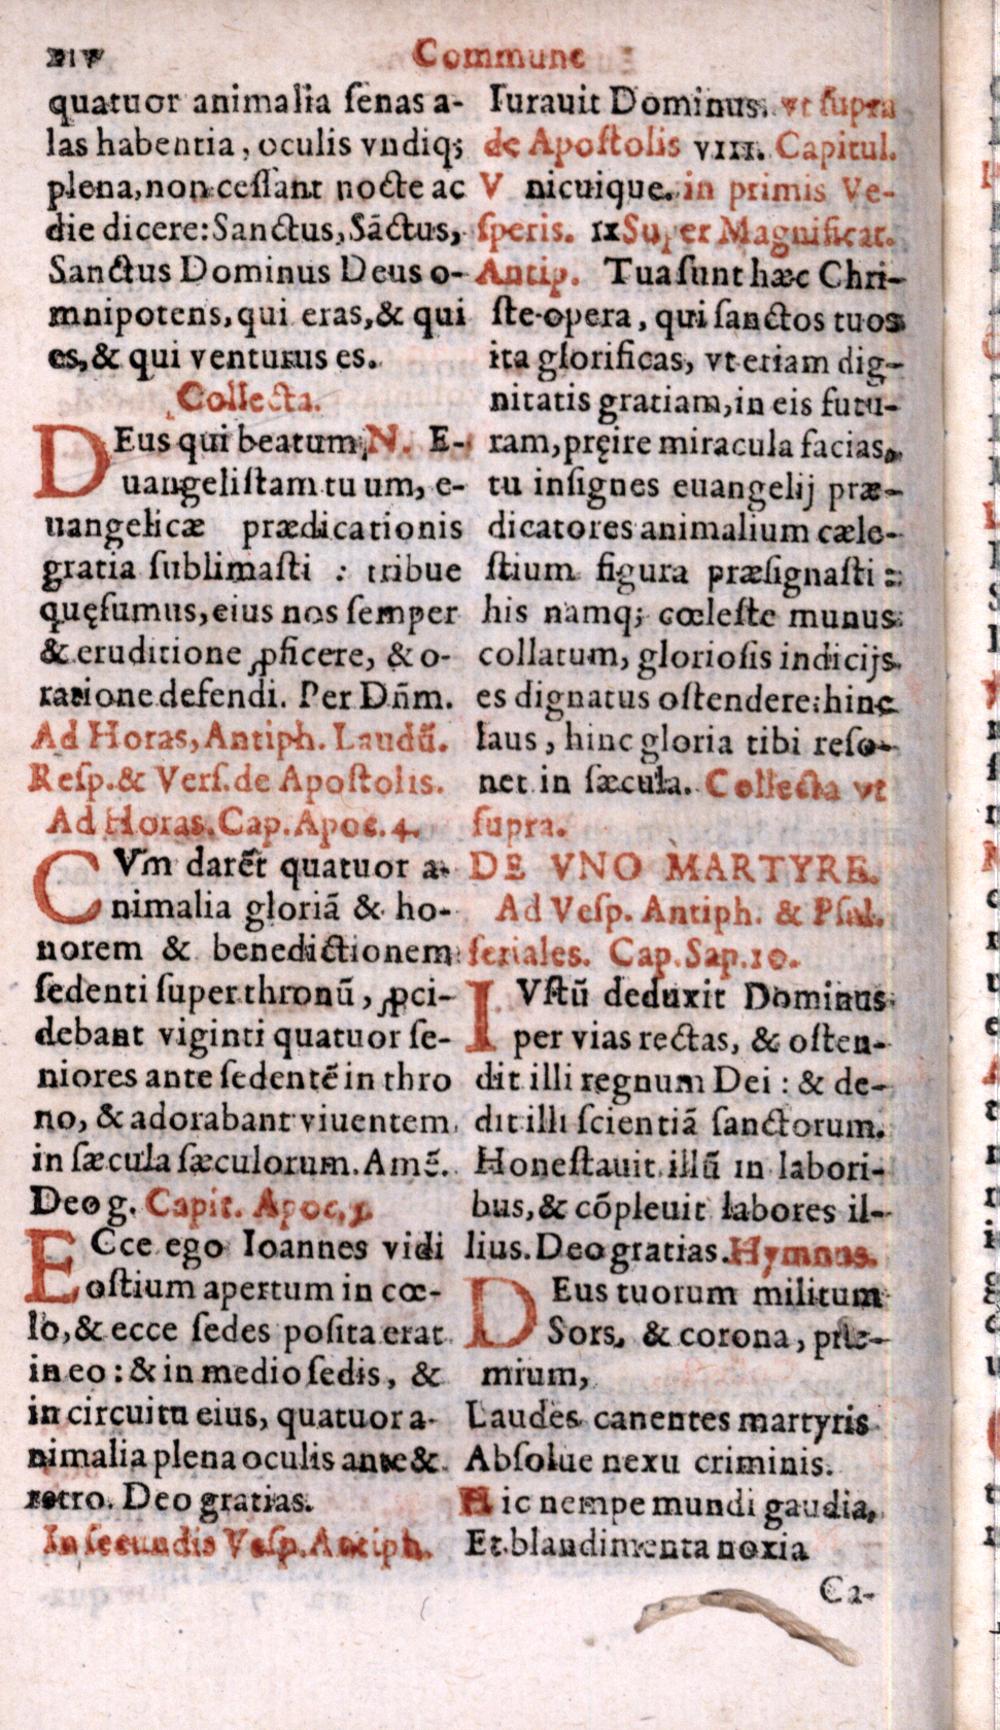 xiv
Commune
quatuor animalia ſenas a-
las habentia, oculis vndiq;
plena, non ceſſant nocte ac
die dicere: Sanctus, Sãctus,
Sanctus Dominus Deus o-
mnipotens, qui eras, & qui
es, & qui venturus es.
Collecta.
DEus qui beatum N. E-
uangeliſtam tuum, e-
uangelicæ prædicationis
gratia ſublimaſti : tribue
quęſumus, eius nos ſemper
& eruditione ꝓficere, & o-
ratione defendi. Per Dñm.
Ad Horas, Antiph. Laudũ.
Reſp. & Verſ. de Apoſtolis.
Ad Horas. Cap. Apoc. 4.
CVm darẽt quatuor a-
nimalia gloriã & ho-
norem & benedictionem
ſedenti ſuper thronũ, ꝓci-
debant viginti quatuor ſe-
niores ante ſedentẽ in thro
no, & adorabant viuentem
in ſæcula ſæculorum. Amẽ.
Deo g. Capit. Apoc.
ECce ego Ioannes vidi
oſtium apertum in cœ-
lo, & ecce ſedes poſita erat
in eo : & in medio ſedis, &
in circuitu eius, quatuor a-
nimalia plena oculis ante &
retro. Deo gratias.
In ſecundis Veſp. Antiph.
Iurauit Dominus. vt ſupra
de Apoſtolis VIII. Capitul.
Vnicuique. in primis Ve-
ſperis. IX Super Magnificat.
Antip. Tua ſunt hæc Chri-
ſte opera, qui ſanctos tuos
ita glorificas, vt etiam dig-
nitatis gratiam, in eis futu-
ram, pręire miracula facias,
tu inſignes euangelij præ-
dicatores animalium cæle-
ſtium figura præſignaſti :
his namq; cœleſte munus
collatum, glorioſis indicijs
es dignatus oſtendere: hinc
laus, hinc gloria tibi reſo-
net in ſæcula. Collecta vt
ſupra.
DE VNO MARTYRE.
Ad Veſp. Antiph. & Pſal.
feriales. Cap. Sap. 10.
IVſtũ deduxit Dominus
per vias rectas, & oſten-
dit illi regnum Dei : & de-
dit illi ſcientiã ſanctorum.
Honeſtauit illũ in labori-
bus, & cõpleuit labores il-
lius. Deo gratias. Hymnus.
DEus tuorum militum
Sors, & corona, præ-
mium,
Laudes canentes martyris
Abſolue nexu criminis.
Hic nempe mundi gaudia,
Et blandimenta noxia
Ca-